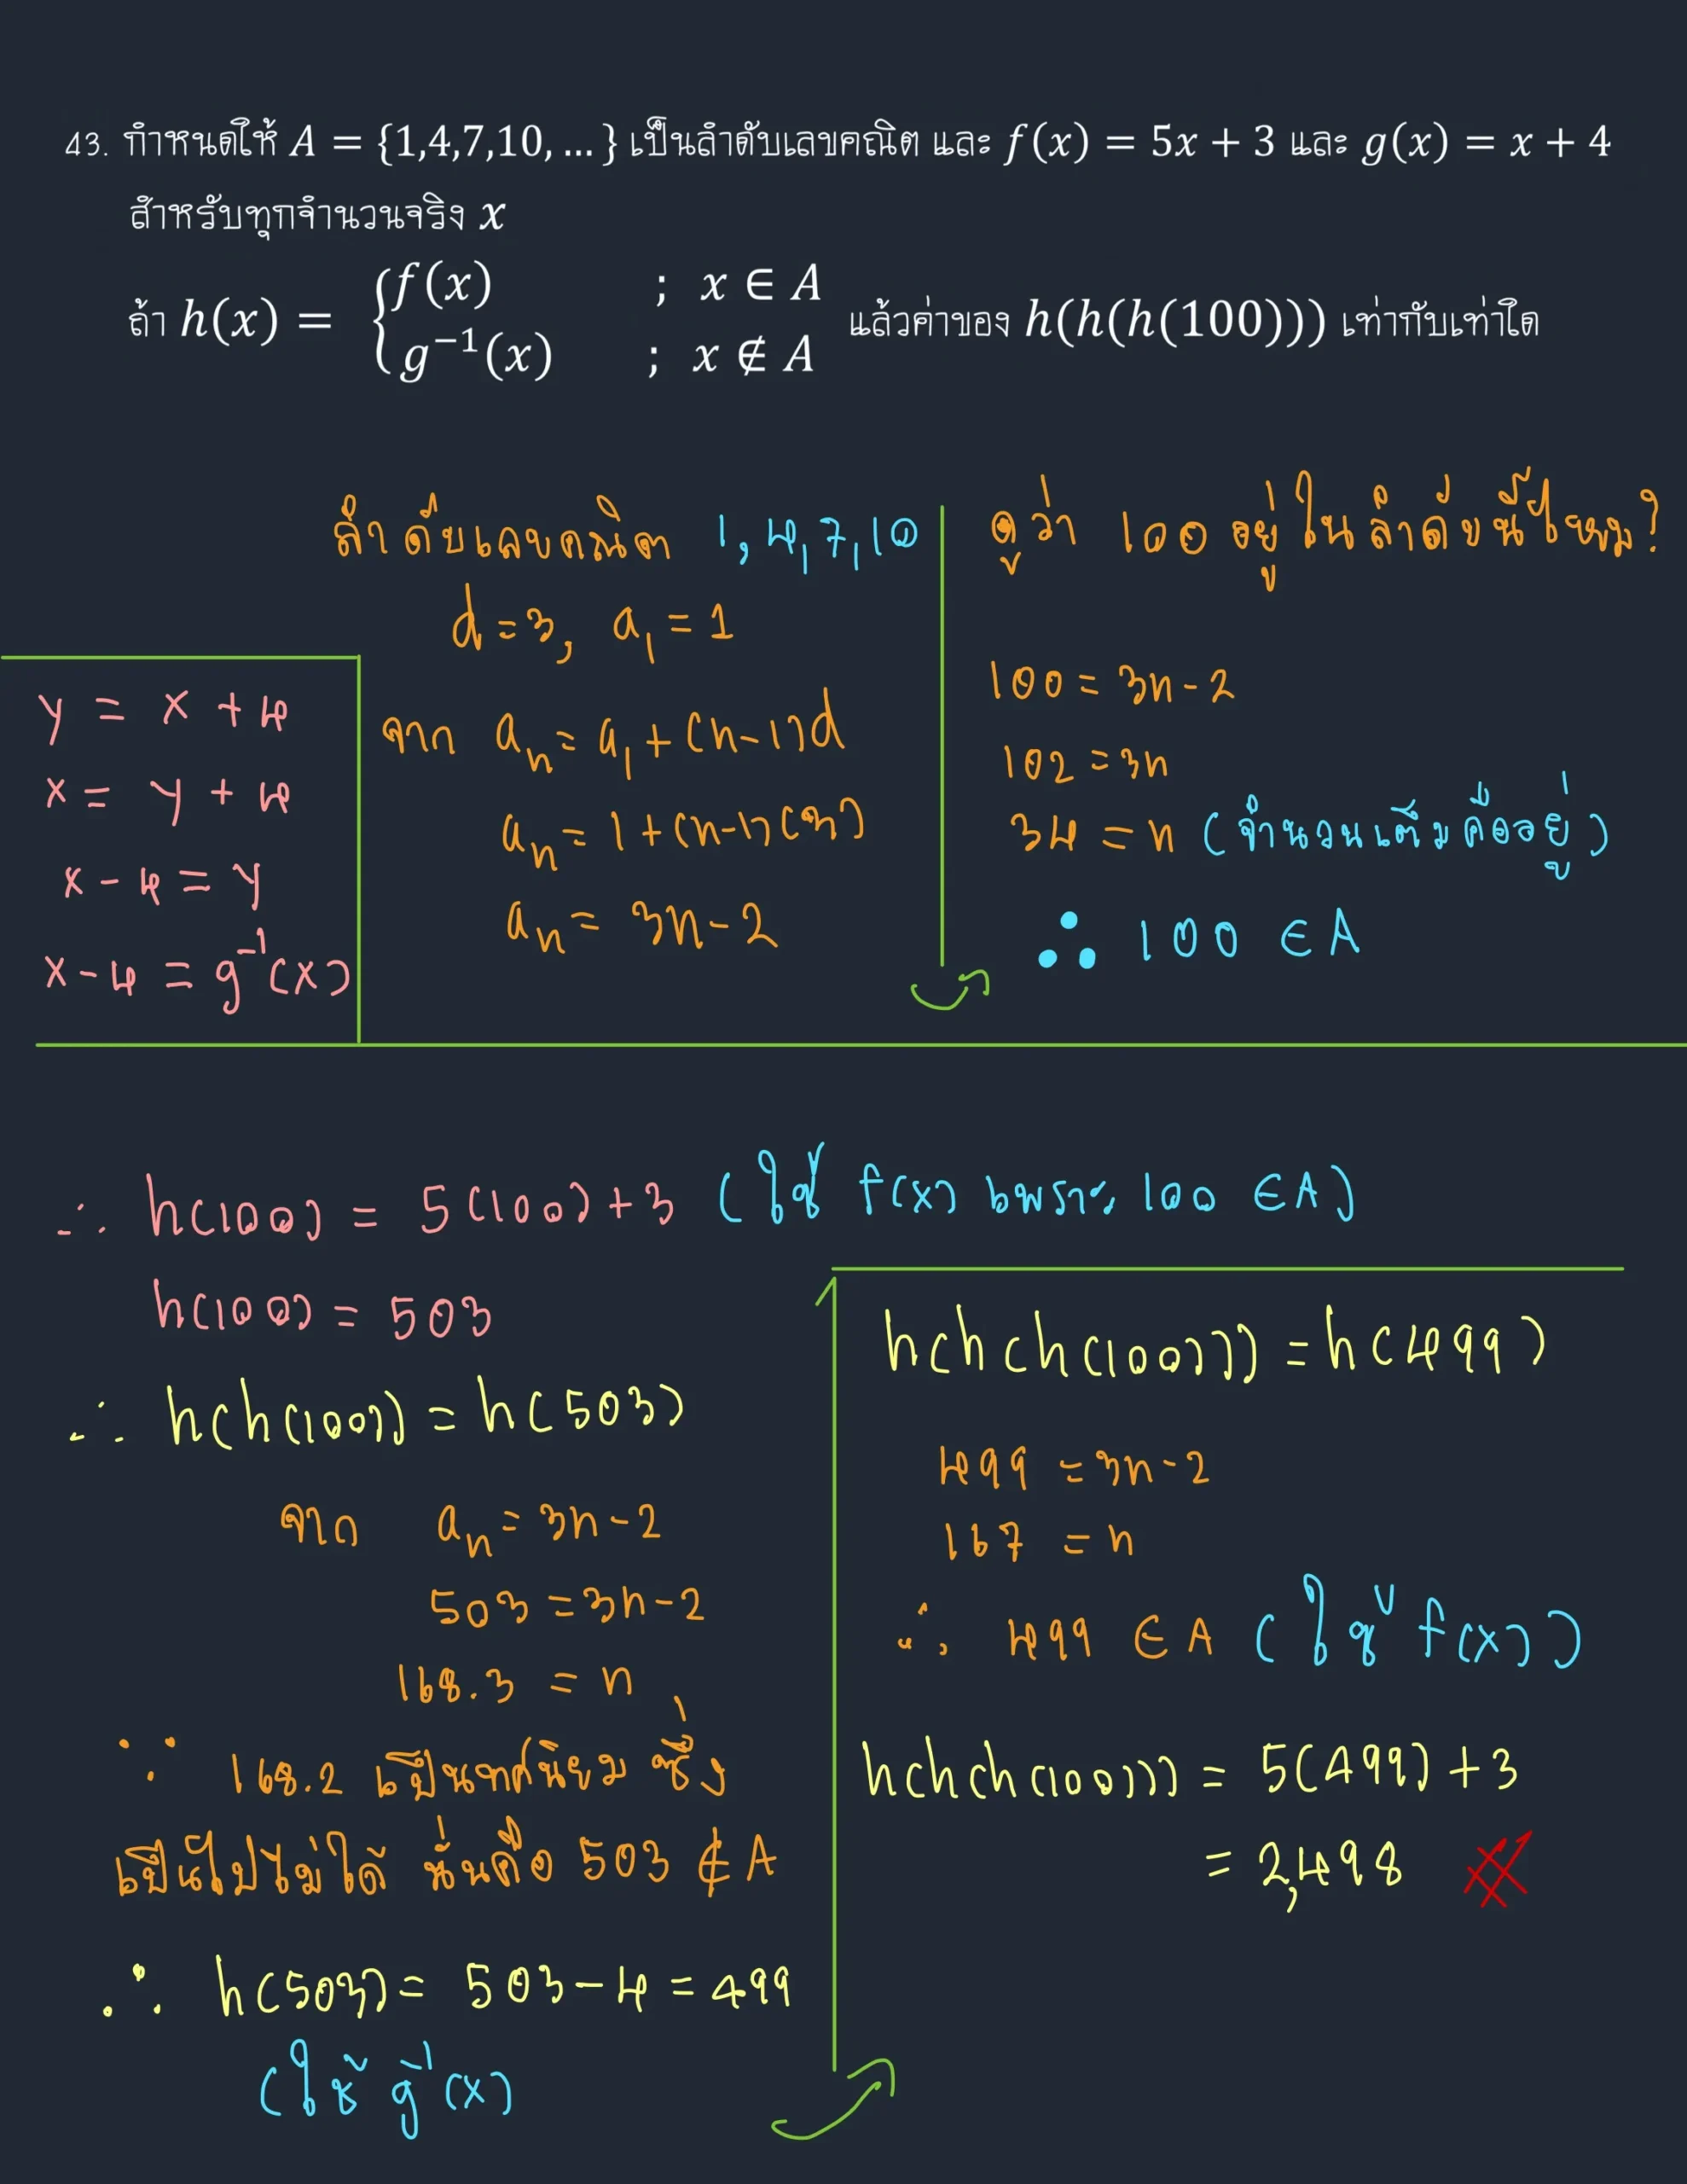 43. กำหนดให้ A = {1,4,7,10, … } เป็นลำดับเลขคณิต และ f(x) = 5x + 3 และ g(x) = x + 4
สำหรับทุกจำนวนจริง x
ถ้า h(x) = { f(x) ; x ∈ A
g⁻¹(x) ; x ∉ A แล้วค่าของ h(h(h(100))) เท่ากับเท่าใด
y = x + 4
x = y + 4
x - 4 = y
x - 4 = g⁻¹(x)
ลำดับเลขคณิต 1, 4, 7, 10
d = 3, a₁ = 1
จาก aₙ = a₁ + (n-1)d
aₙ = 1 + (n-1)(3)
aₙ = 3n - 2
ดูว่า 100 อยู่ในลำดับนี้ไหม?
100 = 3n - 2
102 = 3n
34 = n (จำนวนเต็มคืออยู่)
∴ 100 ∈ A
∴ h(100) = 5(100) + 3 (ใช้ f(x) เพราะ 100 ∈ A)
h(100) = 503
∴ h(h(100)) = h(503)
จาก aₙ = 3n - 2
503 = 3n - 2
168.3 = n
∵ 168.2 เป็นทศนิยม ซึ่ง
เป็นไปไม่ได้ นั่นคือ 503 ∉ A
∴ h(503) = 503 - 4 = 499
(ใช้ g⁻¹(x)
h(h(h(100))) = h(499)
499 = 3n - 2
167 = n
∴ 499 ∈ A (ใช้ f(x))
h(h(h(100))) = 5(499) + 3
= 2,498